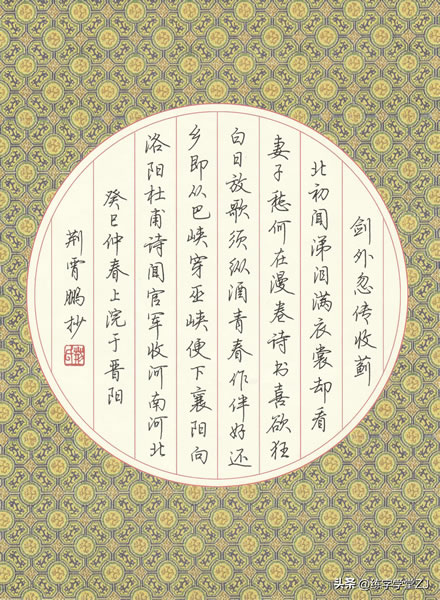 剑外忽传收蓟
北初闻涕泪满衣裳却看
妻子愁何在漫卷诗书喜欲狂
白日放歌须纵酒青春作伴好还
乡即从巴峡穿巫峡便下襄阳向
洛阳杜甫诗闻官军收河南河北
癸巳仲春上浣于晋阳
荆霄鹏抄
头条@练字学堂ZJ